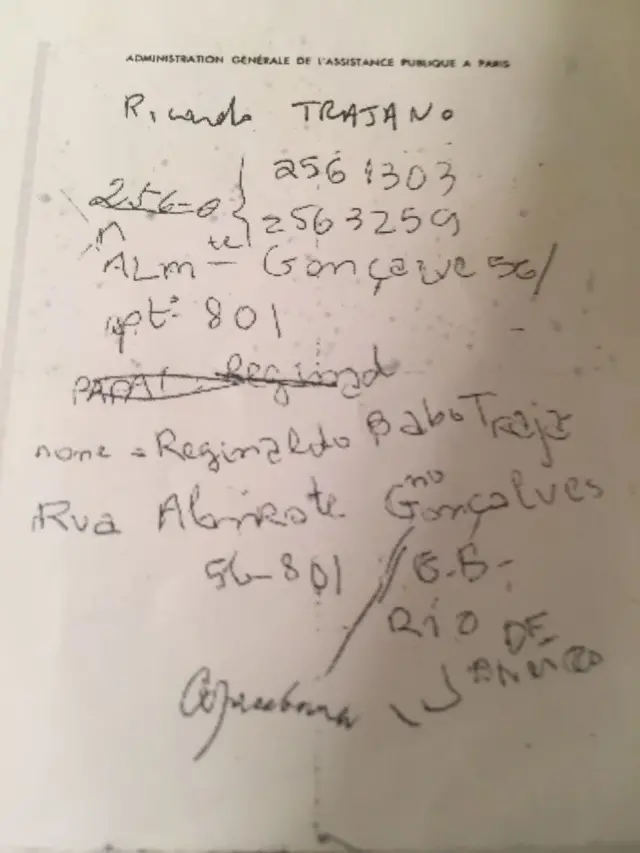 ADMINISTRATION GÉNÉRALE DE L'ASSISTANCE PUBLIQUE A PARIS
Ricardo TRAJANO
256-0 { 256 1303
n te 2563259
ALM - Gonçalve 56/
apt: 801
PAPAI Reginald
nome = Reginaldo Babo Traja
no
Rua Almirante Gonçalves
56-801 / G.B-
RIO DE
JANEIRO
Copacabana